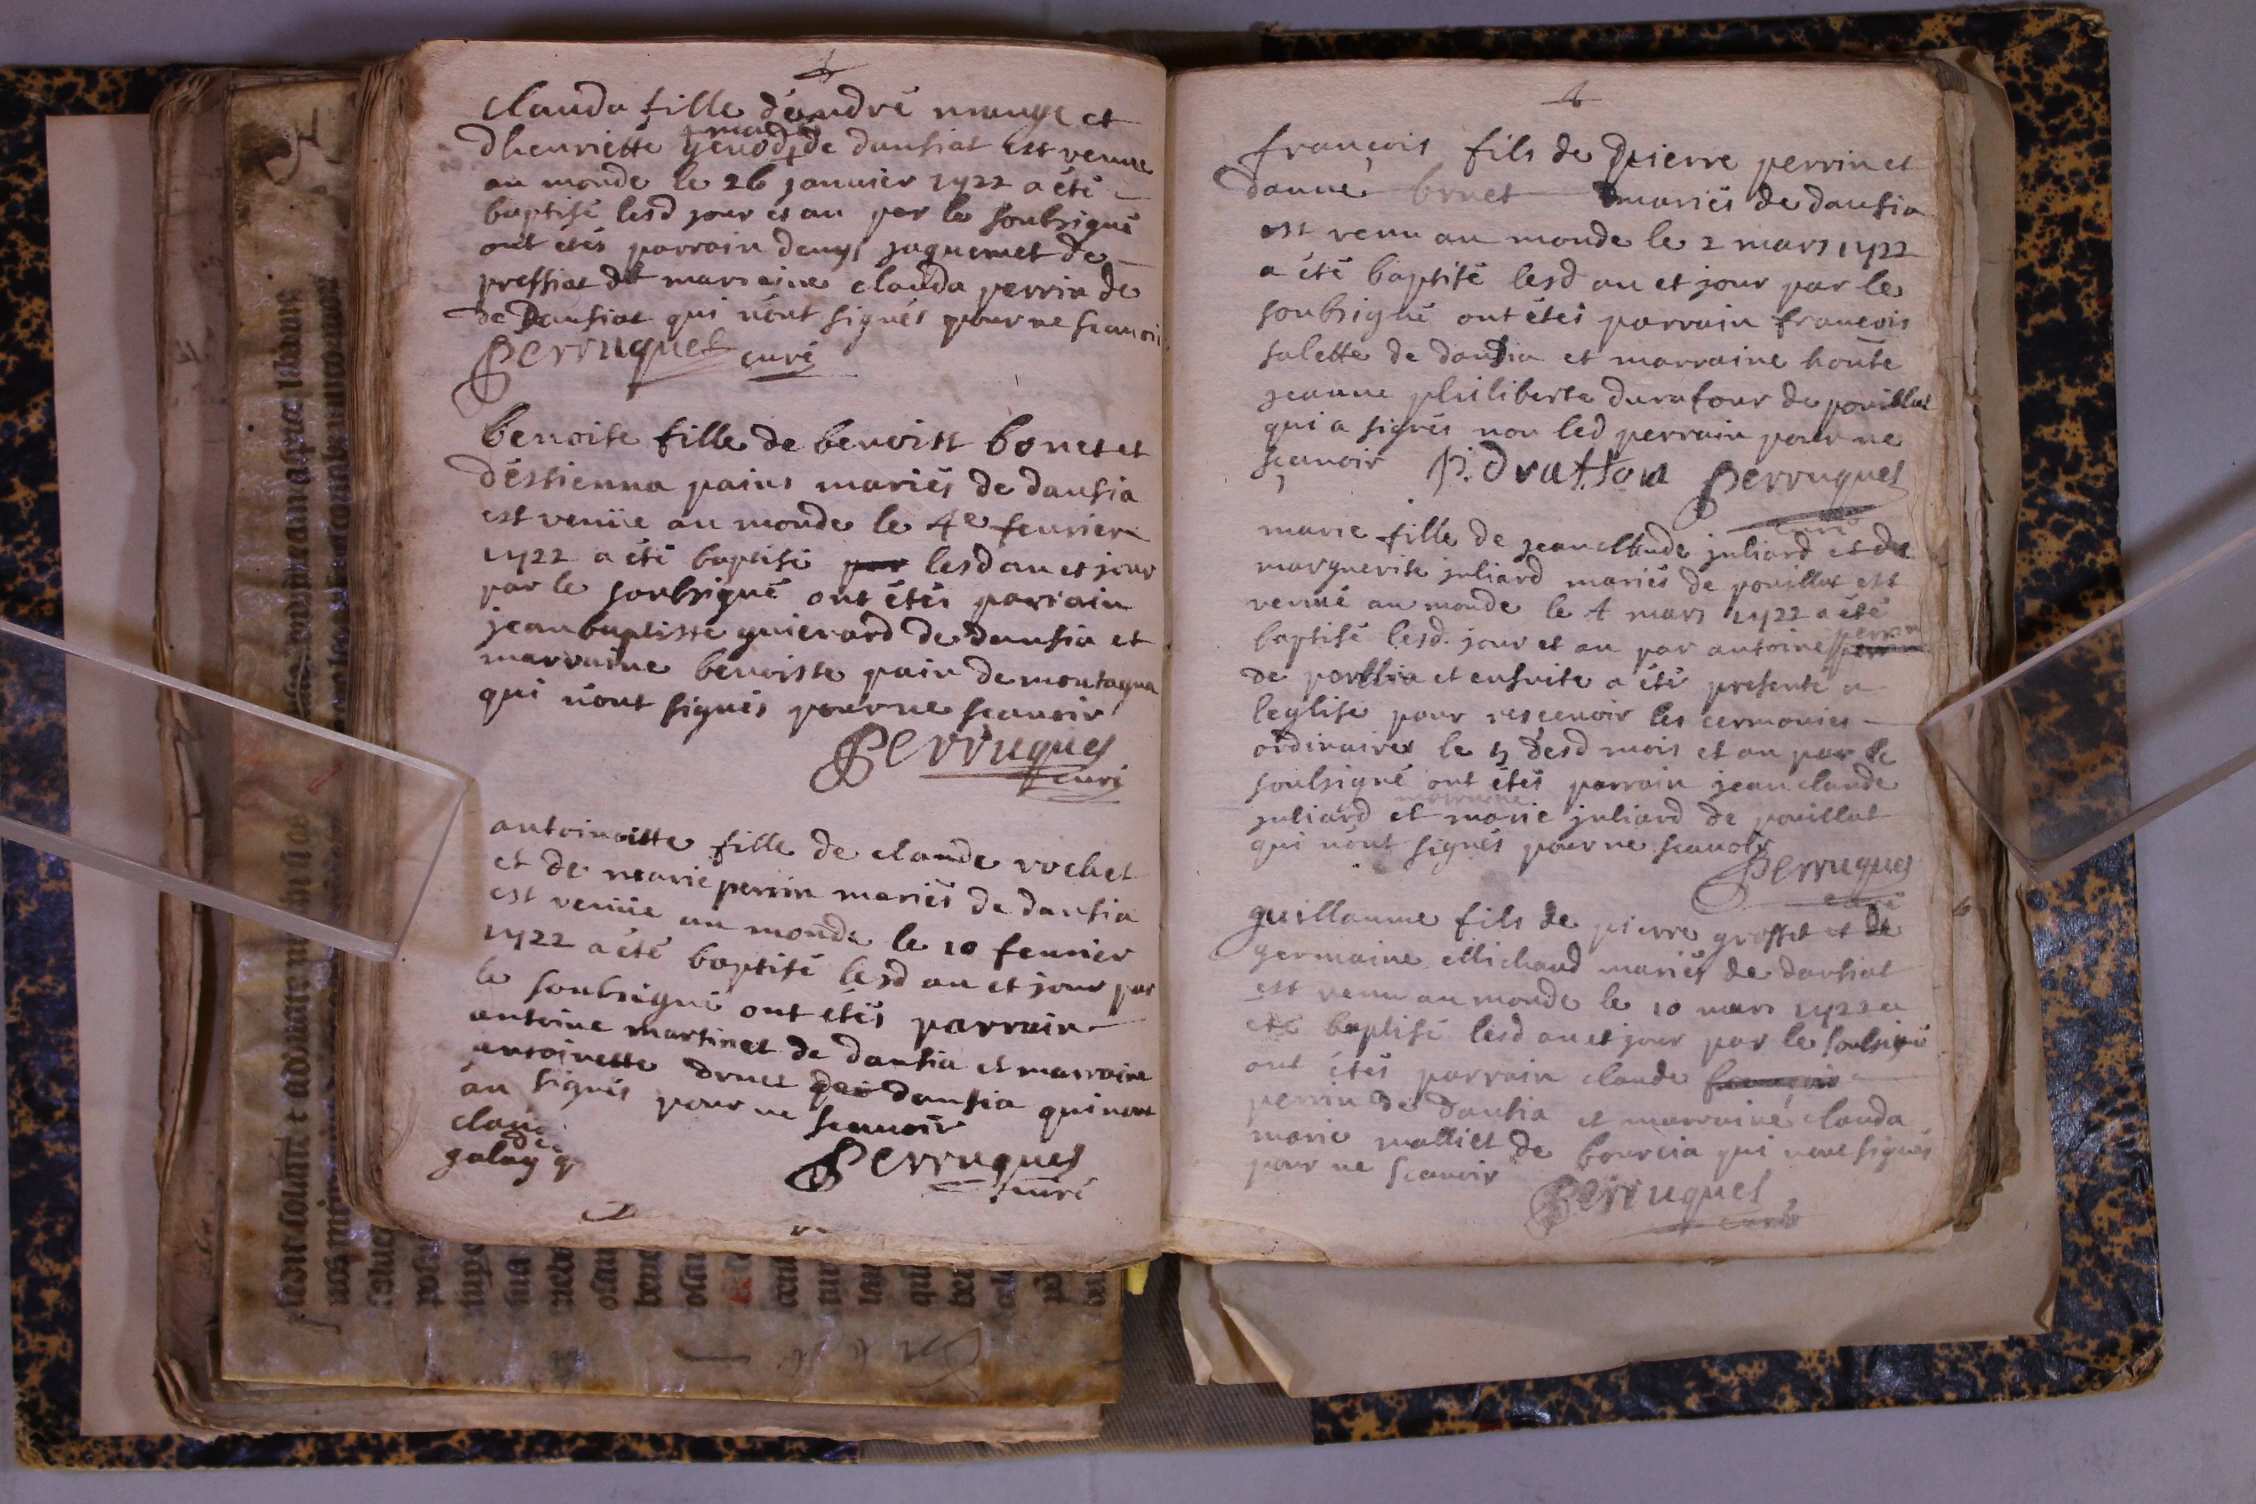 clauda fille d'andré mauge et
mariés
dhenriette genod de dansiat est venue
au monde le 26 janvier 1722 a été
baptisé lesd jour et an par le soubsigné
ont étés parrain denys jaquemet de
pressiat et marraine clauda perrin de
de Dansiat qui nont signés pour ne scauoir
Perruquet curé
benoite fille de benoist bonet et
d'éstienna pains mariés de dansia
est venüe au monde le 4e feurier
1722 a été baptisé par lesd an et jour
par le soubsigné ont étés parrain
jean baptiste guierard de dansia et
marraine benoiste pain de montagna
qui n'ont signés pour ne scauoir
Perruquet
curé
antoinette fille de claude rochet
et de marie perrin mariés de dansia
est venüe au monde le 10 feurier
1722 a été baptisé lesd an et jour par
le soubsigné ont étés parrain
antoine martinet de dansia et marraine
antoinette druet de dansia qui nont
signés pour ne scauoir
claude
Perruquet
curé
françois fils de pierre perrin et
danne bruet mariés de dansia
est venu au monde le 2 mars 1722
a été baptisé lesd an et jour par le
soubsigné ont étés parrain françois
salette de dansia et marraine honte
jeanne philiberte durafour de pouillat
qui a signés non led perrain pour ne
scauoir Perruquet
curé
marie fille de jean claude juliard et de
marguerite juliard mariés de pouillat est
venüe au monde le 4 mars 1722 a été
baptisé lesd. jour et an par antoine perrin
de et ensuite a été presenté a
leglise pour rescenoir les cermonies
ordinaires le 5 desd mois et an par le
soubsigné ont étés parrain jean claude
marraine
juliard et marie juliard de pouillat
qui n'ont signés pour ne scauoir
Perruquet
curé
guillaume fils de pierre grosset et de
germaine Michaud mariés de dansiat
est venu au monde le 10 mars 1722 a
été baptisé lesd an et jour par le soubsigné
ont étés parrain claude françois
perrin de dansia et marraine clauda
marie malliet de bourcia qui nont signés
pour ne scauoir
Perruquet
curé